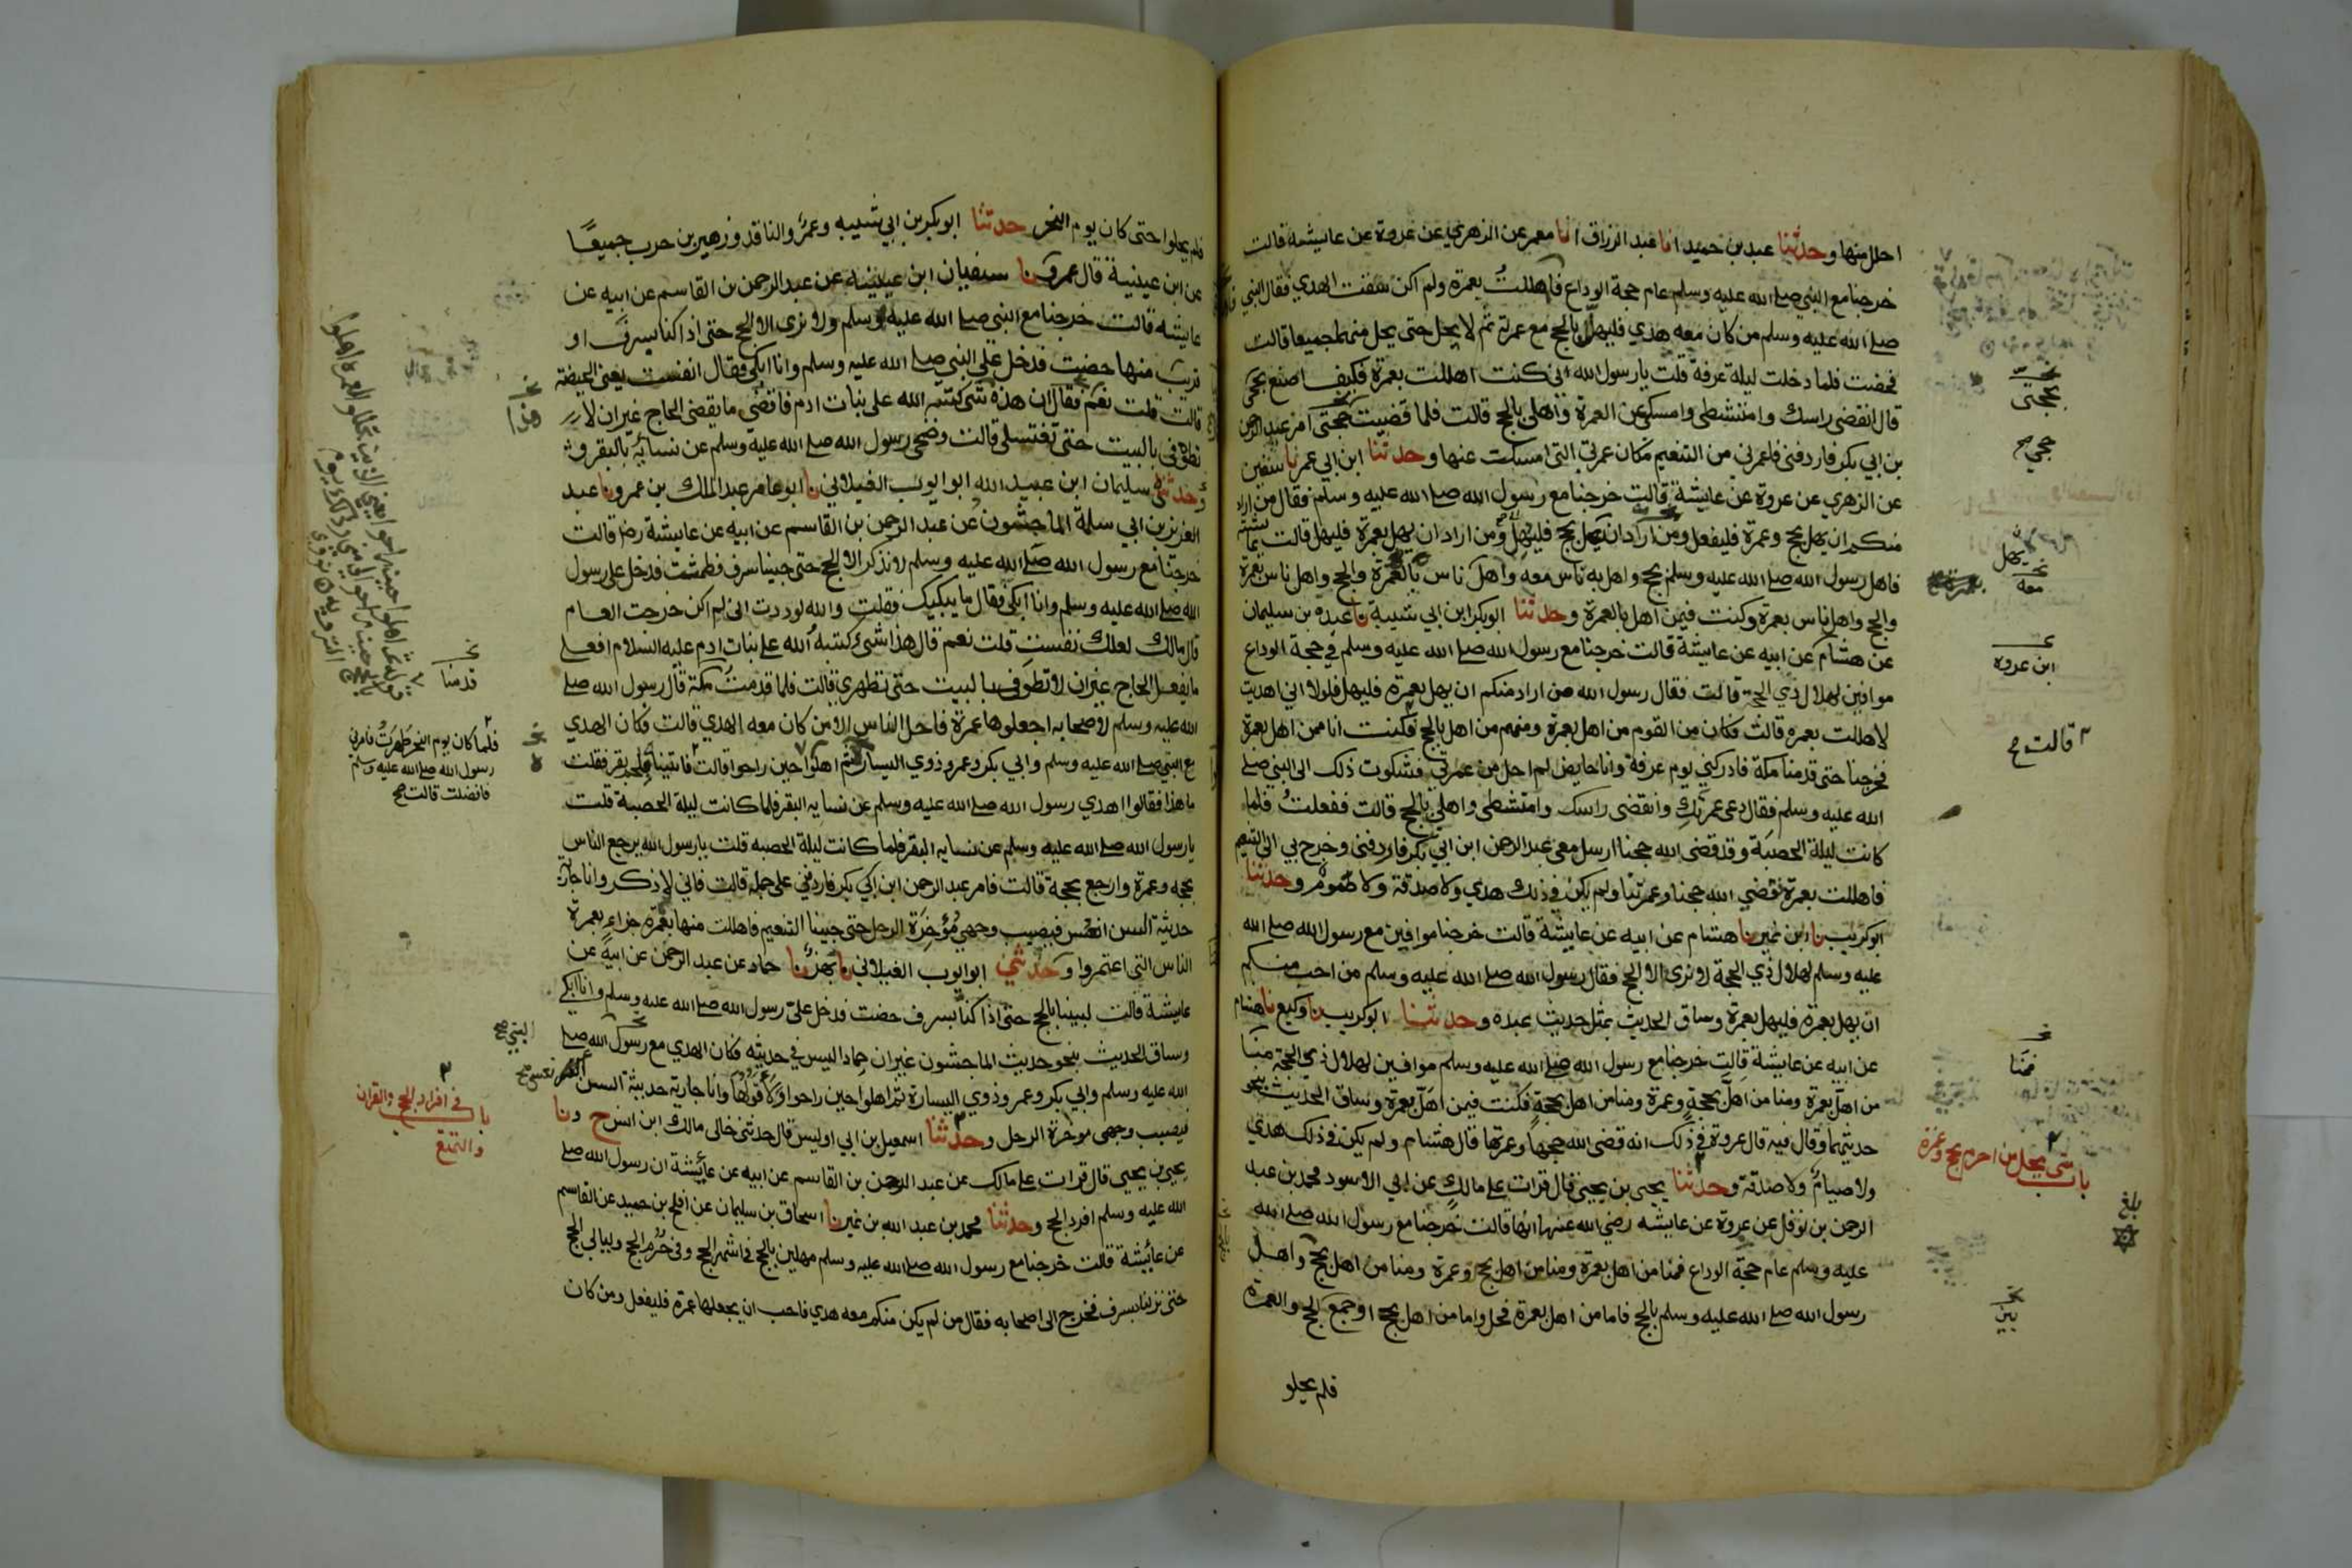 احلل منها وحدثنا عبد بن حميد انا عبد الرزاق انا معمر عن الزهري عن عروة عن عايشة قالت
خرجنا مع النبي صلے الله عليه وسلم عام حجة الوداع فاهللت بعمرة ولم اكن سقت الهدي فقال النبي
صلے الله عليه وسلم من كان معه هدي فليهل بالحج مع عمرته ثم لا يحل حتى يحل منهما جميعا قالت
فحضت فلما دخلت ليلة عرفة قلت يا رسول الله اني كنت اهللت بعمرة فكيف اصنع بحجتي
قال انقضى راسك وامتشطى وامسكي عن العمرة واهلى بالحج قالت فلما قضيت حجتى امر عبد الرحمن
بن ابي بكر فاردفني فاعمرني من التنعيم مكان عمرتي التى امسكت عنها وحدثنا ابن ابي عمر نا سفين
عن الزهري عن عروة عن عايشة قالت خرجنا مع رسول الله صلے الله عليه وسلم فقال من اراد
منكم ان يهل بحج وعمرة فليفعل ومن اراد ان يهل بحج فليهل ومن اراد ان يهل بعمرة فليهل قالت عايشة
فاهل رسول الله صلے الله عليه وسلم بحج واهل به ناس معه واهل ناس بالعمرة والحج واهل ناس بعمرة
والحج واهل ناس بعمرة وكنت فيمن اهل بالعمرة وحدثنا ابو بكر ابن ابي شيبة نا عبدة بن سليمان
عن هشام عن ابيه عن عايشة قالت خرجنا مع رسول الله صلے الله عليه وسلم في حجة الوداع
موافين لهلال ذي الحجة قالت فقال رسول الله من اراد منكم ان يهل بعمرة فليهل فلولا اني اهديت
لاهللت بعمرة قالت فكان من القوم من اهل بعمرة ومنهم من اهل بالحج فكنت انا ممن اهل بعمرة
فخرجنا حتى قدمنا مكة فادركني يوم عرفة وانا حايض لم احل من عمرتي فشكوت ذلك الى النبي صلے
الله عليه وسلم فقال دعى عمرتك وانقضى راسك وامتشطى واهلي بالحج قالت ففعلت فلما
كانت ليلة الحصبة وقد قضى الله حجنا ارسل معى عبد الرحمن ابن ابي بكر فاردفنى وخرج بي الى التنعيم
فاهللت بعمرة فقضي الله حجنا وعمرتنا ولم يكن في ذلك هدي ولا صدقة ولا صوم وحدثنا
ابو كريب نا ابن نمير نا هشام عن ابيه عن عايشة قالت خرجنا موافين مع رسول الله صلے الله
عليه وسلم لهلال ذي الحجة لا نرى الا الحج فقال رسول الله صلے الله عليه وسلم من احب منكم
ان يهل بعمرة فليهل بعمرة وساق الحديث بمثل حديث عبدة وحدثنا ابو كريب نا وكيع نا هشام
عن ابيه عن عايشة قالت خرجنا مع رسول الله صلے الله عليه وسلم موافين لهلال ذي الحجة منا
من اهل بعمرة ومنا من اهل بحجة وعمرة ومنا من اهل بحجة فكنت فيمن اهل بعمرة وساق الحديث بنحو
حديثهما وقال فيه قال عروة في ذلك انه قضى الله حجها وعمرتها قال هشام ولم يكن في ذلك هدي
ولا صيام ولا صدقة وحدثنا يحيى بن يحيى قال قرات على مالك عن ابي الاسود محمد بن عبد
الرحمن بن نوفل عن عروة عن عايشه رضي الله عنها انها قالت خرجنا مع رسول الله صلے الله
عليه وسلم عام حجة الوداع فمنا من اهل بعمرة ومنا من اهل بحج وعمرة ومنا من اهل بحج واهل
رسول الله صلے الله عليه وسلم بالحج فاما من اهل بعمرة فحل واما من اهل بحج او جمع الحج والعمرة
فلم يحلو
بحجتى
حجي صح
يهل
معه
ابن عروه
قالت صح
فمنا
باب متى يحل من احرم بحج وعمرة
بلغ
فلم يحلوا حتى كان يوم النحر حدثنا ابو بكر بن ابي شيبه وعمرو الناقد وزهير بن حرب جميعًا
عن ابن عيينة قال عمرو نا سفيان ابن عيينه عن عبد الرحمن بن القاسم عن ابيه عن
عايشه قالت خرجنا مع النبي صلے الله عليه وسلم ولا نرى الا الحج حتى اذا كنا بسرف او
قريب منها حضت فدخل علي النبي صلے الله عليه وسلم وانا ابكي فقال انفست يعني الحيضة
قالت قلت نعم فقال ان هذه شى كتبه الله على بنات ادم فاقضى ما يقضى الحاج غير ان لا
تطوفى بالبيت حتى تغتسلى قالت وضحى رسول الله صلے الله عليه وسلم عن نسائه بالبقر
وحدثني سليمان ابن عبيد الله ابو ايوب الغيلاني نا ابو عامر عبد الملك بن عمرو نا عبد
العزيز بن ابي سلمة الماجشون عن عبد الرحمن بن القاسم عن ابيه عن عايشة رضا قالت
خرجنا مع رسول الله صلے الله عليه وسلم لا نذكر الا الحج حتى جينا سرف فطمثت فدخل علي رسول
الله صلے الله عليه وسلم وانا ابكي فقال ما يبكيك فقلت والله لوددت انى لم اكن خرجت العام
قال مالك لعلك نفست قلت نعم قال هذا شئ كتبه الله على بنات ادم عليه السلام افعلى
ما يفعل الحاج غير ان لا تطوفى بالبيت حتى تطهري قالت فلما قدمت مكة قال رسول الله صلے
الله عليه وسلم لاصحابه اجعلوها عمرة فاحل الناس الا من كان معه الهدي قالت فكان الهدي
مع النبي صلے الله عليه وسلم وابي بكر وعمر وذوي اليسارة ثم اهلوا حين راحوا قالت فاتينا بلحم بقر فقلت
ما هذا فقالوا اهدي رسول الله صلے الله عليه وسلم عن نسايه البقر فلما كانت ليلة الحصبة قلت
يا رسول الله صلے الله عليه وسلم عن نسايه البقر فلما كانت ليلة الحصبه قلت يا رسول الله يرجع الناس
بحجه وعمرة وارجع بحجة قالت فامر عبد الرحمن ابن ابي بكر فاردفني على جمله قالت فاني لاذكر وانا جارية
حديثة السن انعس فيصيب وجهي مؤخرة الرحل حتى جينا التنعيم فاهللت منها بعمرة جزاء بعمرة
الناس التى اعتمروا وحدثني ابو ايوب الغيلاني نا بهز نا حماد عن عبد الرحمن عن ابيه عن
عايشة قالت لبينا بالحج حتى اذا كنا بسرف حضت فدخل علي رسول الله صلے الله عليه وسلم وانا ابكي
وساق الحديث بنحو حديث الماجشون غير ان حمادا ليس في حديثه فكان الهدي مع رسول الله صلے
الله عليه وسلم وابي بكر وعمر وذوي اليسارة ثم اهلوا حين راحوا ولا قولها وانا جارية حديثة السن
فيصيب وجهى موخرة الرحل وحدثنا اسمعيل بن ابي اويس قال حدثنى خالى مالك ابن انس ح ونا
يحيى بن يحيى قال قرات على مالك عن عبد الرحمن بن القاسم عن ابيه عن عائشة ان رسول الله صلے
الله عليه وسلم افرد الحج وحدثنا محمد بن عبد الله بن نمير نا اسحاق بن سليمان عن افلح بن حميد عن القاسم
عن عائشة قالت خرجنا مع رسول الله صلے الله عليه وسلم مهلين بالحج في اشهر الحج وفي حرم الحج وليالي الحج
حتى نزلنا بسرف فخرج الى اصحابه فقال من لم يكن منكم معه هدي فاحب ان يجعلها عمرة فليفعل ومن كان
هذا
قدمنا
فلما كان يوم النحر طهرت فامرني
رسول الله صلے الله عليه وسلم
فافضت قالت صح
النبي صح
انعس صح
باب في افراد الحج والقران
والتمتع